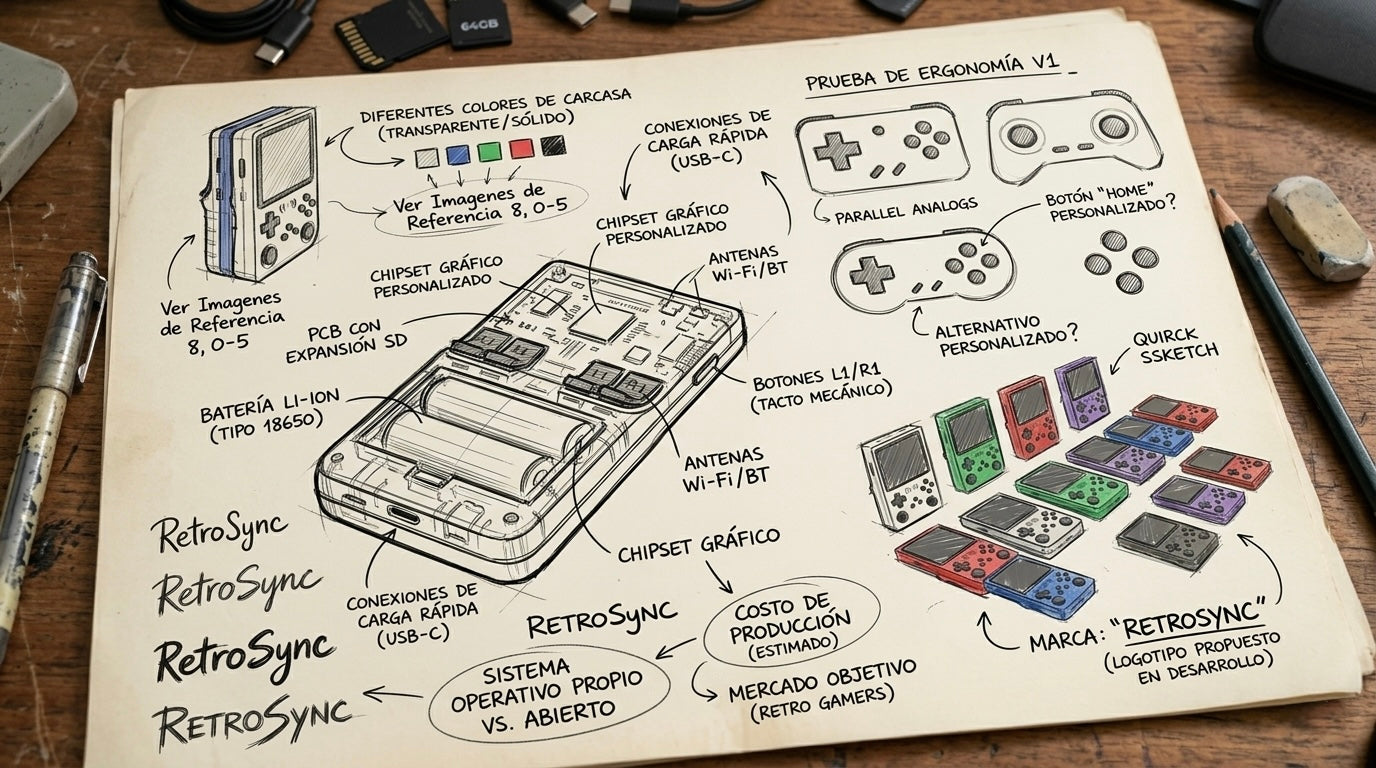 64GB
PRUEBA DE ERGONOMÍA V1
DIFERENTES COLORES DE CARCASA
(TRANSPARENTE/SÓLIDO)
Ver Imagenes de
Referencia 8, 0-5
CONEXIONES DE
CARGA RÁPIDA
(USB-C)
CHIPSET GRÁFICO
PERSONALIZADO
PARALLEL ANALOGS
BOTÓN "HOME"
PERSONALIZADO?
CHIPSET GRÁFICO
PERSONALIZADO
ANTENAS
Wi-Fi/BT
Ver Imagenes
de Referencia
8, 0-5
PCB CON
EXPANSIÓN SD
ALTERNATIVO
PERSONALIZADO?
QUIRCK
SSKETCH
BATERÍA LI-ION
(TIPO 18650)
BOTONES L1/R1
(TACTO MECÁNICO)
ANTENAS
Wi-Fi/BT
RetroSync
RetroSync
RetroSync
RETROSYNC
CONEXIONES DE
CARGA RÁPIDA
(USB-C)
CHIPSET GRÁFICO
RETROSYNC
COSTO DE
PRODUCCIÓN
(ESTIMADO)
SISTEMA
OPERATIVO PROPIO
VS. ABIERTO
MERCADO OBJETIVO
(RETRO GAMERS)
MARCA: "RETROSYNC"
(LOGOTIPO PROPUESTO
EN DESARROLLO)